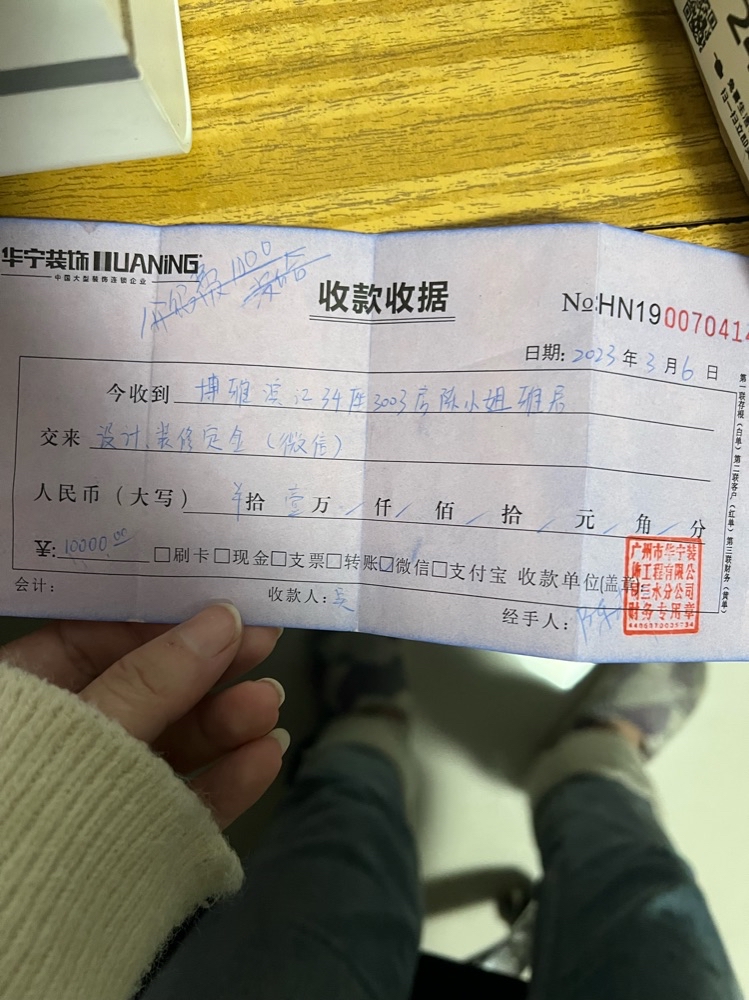 华宁装饰 HUANiNG
中国大型装饰连锁企业
1000
收款收据
№:HN19 0070414
日期: 2023 年 3 月 6 日
今收到 博雅滨江34座3003房陈小姐雅居
交来 设计、装修定金 (微信)
人民币 (大写) ¥ 拾 壹 万 / 仟 / 佰 / 拾 / 元 / 角 / 分
¥: 10000.00 □刷卡□现金□支票□转账☑微信□支付宝 收款单位(盖章)
会计: 收款人: 吴 经手人:
第一联存根(白单) 第二联客户(红单) 第三联财务(黄单)
广州市华宁装
饰工程有限公
司三水分公司
财务专用章